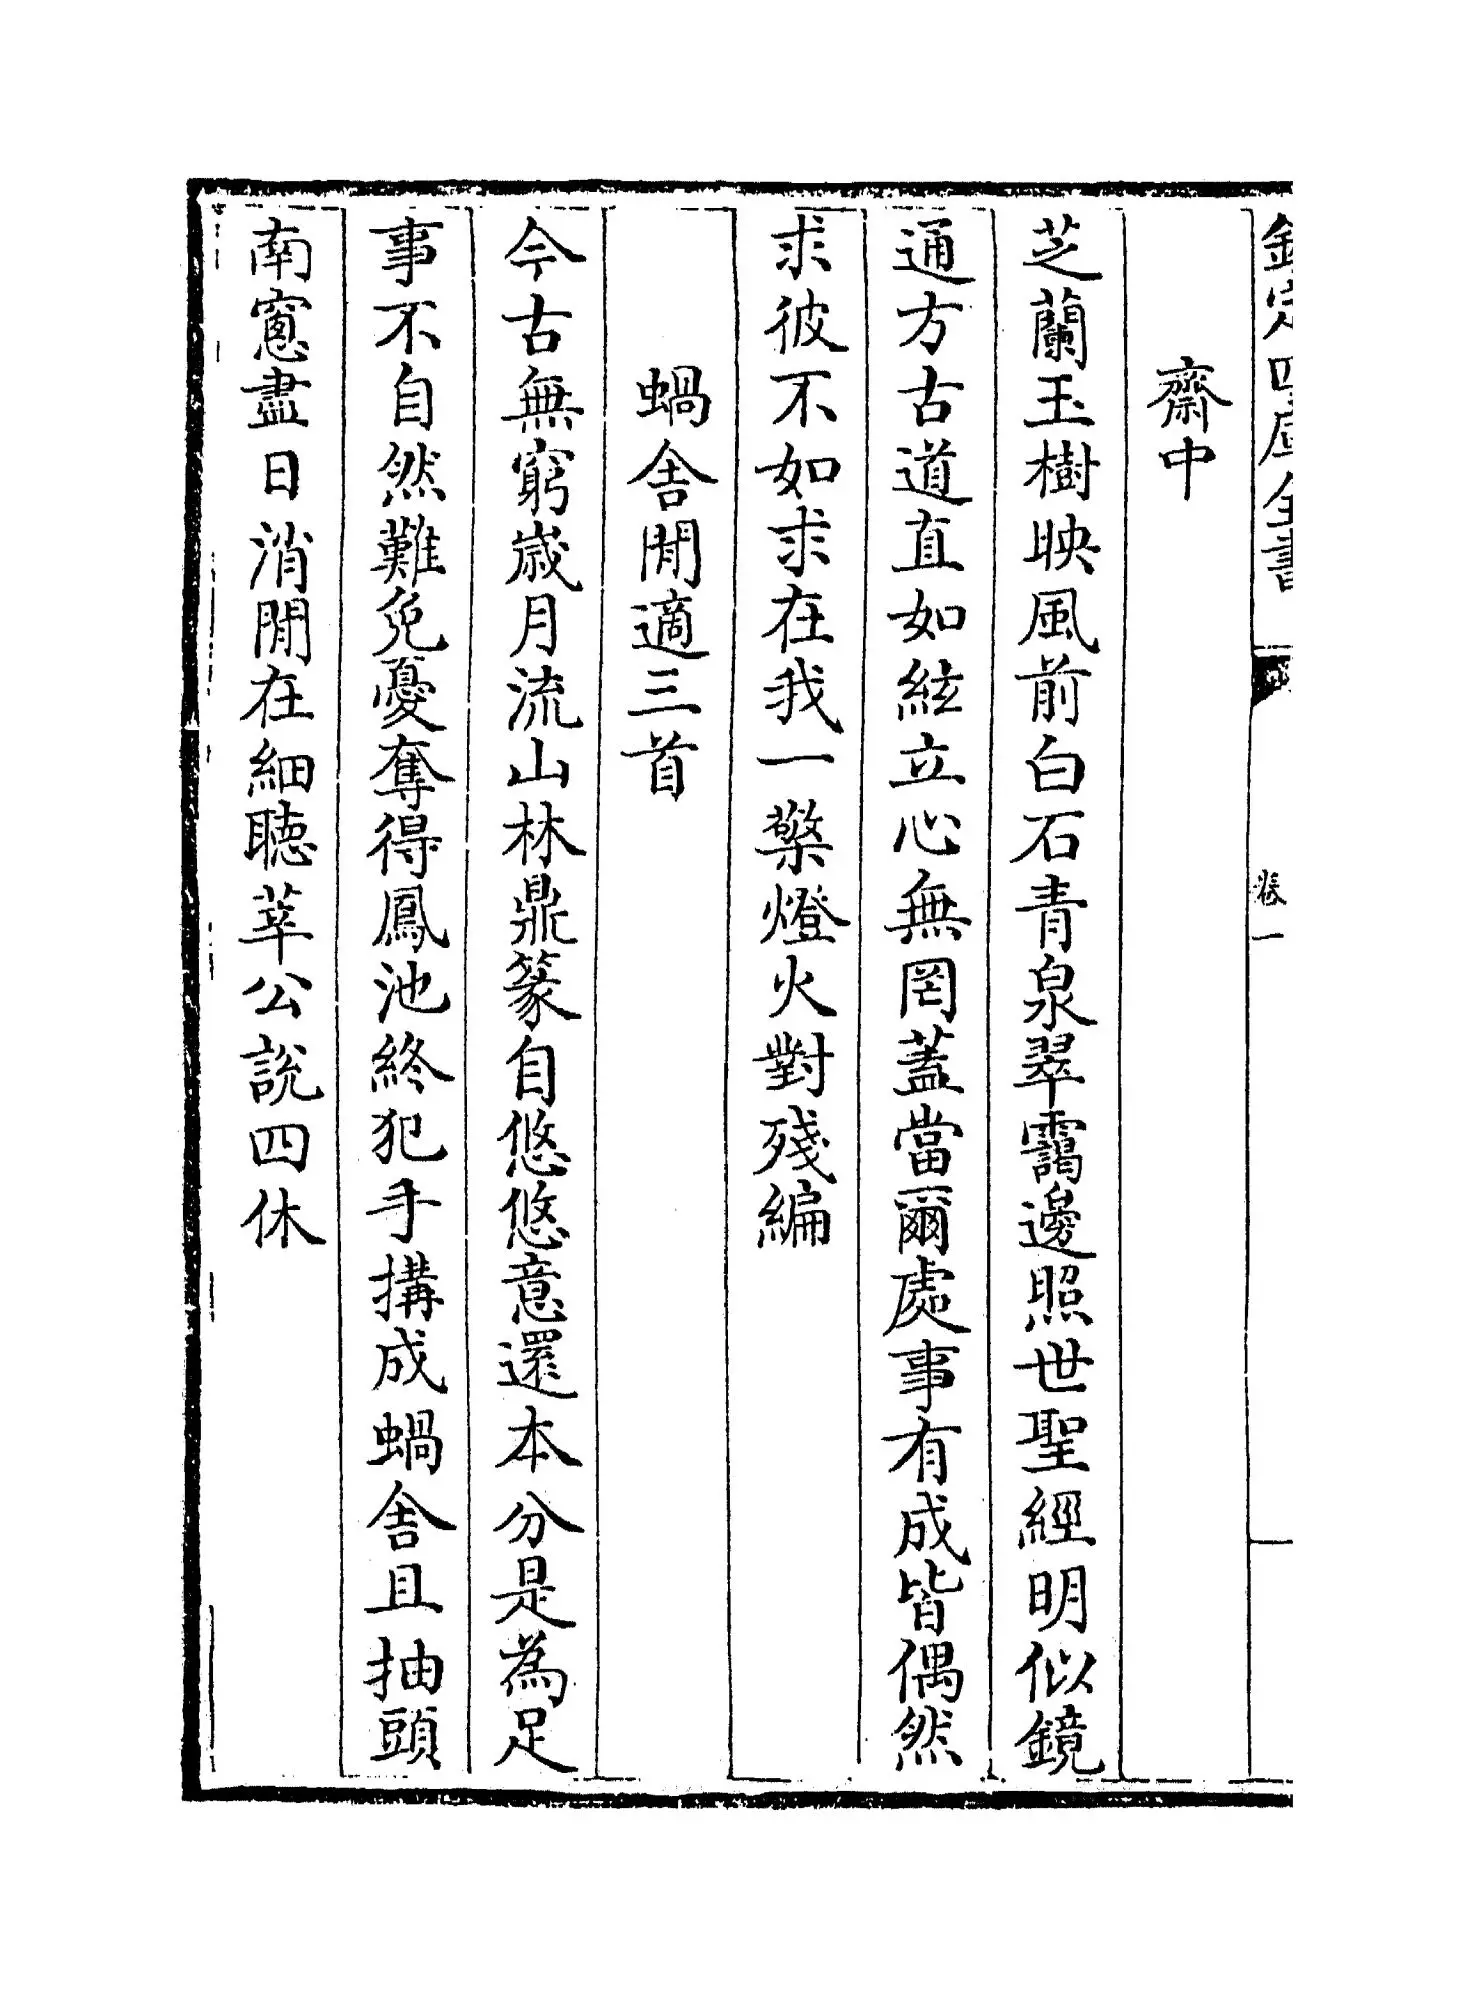 欽定四庫全書
卷一
齋中
芝蘭玉樹映風前白石青泉翠靄邊照世聖經明似鏡
通方古道直如絃立心無罔蓋當爾處事有成皆偶然
求彼不如求在我一檠燈火對殘編
蝸舎閒適三首
今古無窮歳月流山林鼎篆自悠悠意還本分是為足
事不自然難免憂奪得鳳池終犯手搆成蝸舎且抽頭
南窻盡日消閒在細聴莘公説四休